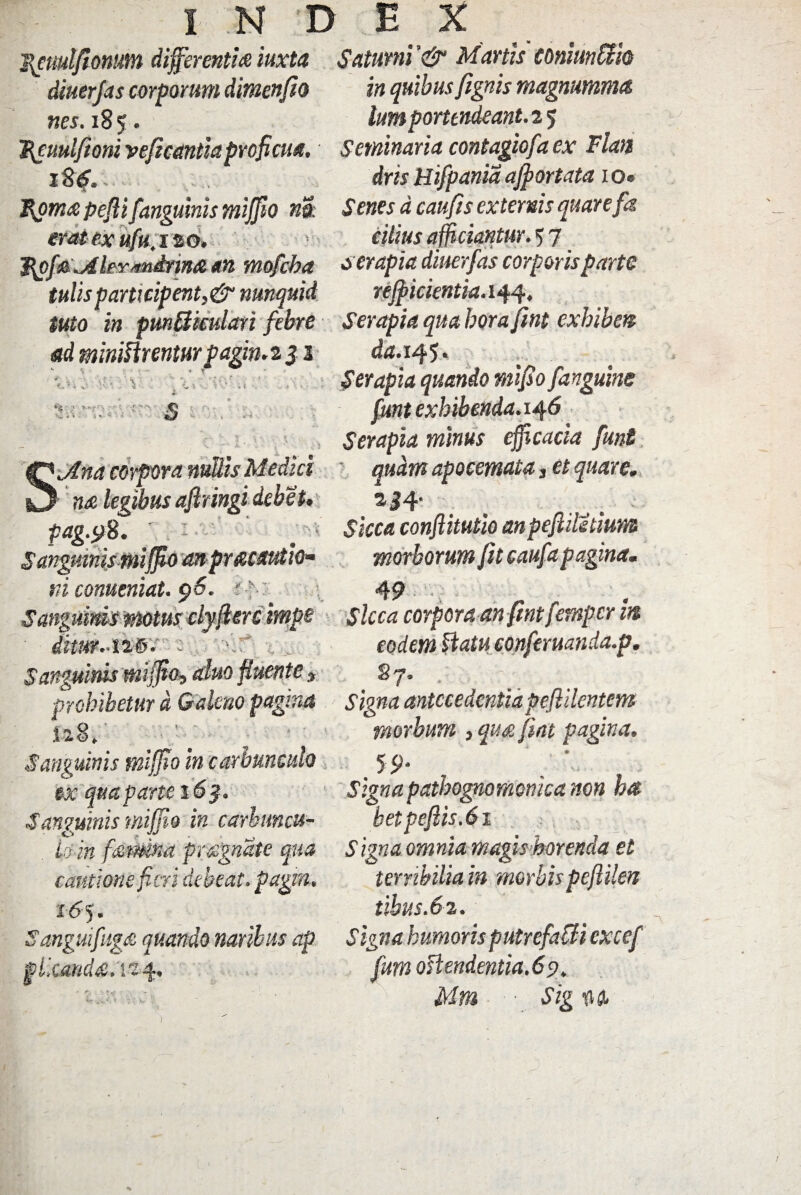 INDEX
Reuulſionum differentiæ iuxta
diuerſas corporum dimenſio
nes. 185.
Reuulſioni veſicantia proficua.
186.
Romæ peſti ſanguinis miſſio nō
erat ex uſu. 120.
Roſæ Alexandrinæ an moſcha
tulis participent, & nunquid
tuto in puncticulari febre
ad miniſtrentur pagin. 231
S
SAna corpora nullis Medici
næ legibus aſtringi debēt.
pag. 98.
Sanguinis miſſio an præcautio-
ni conueniat. 96.
Sanguinis motus clyſtere impe
ditur. 126.
Sanguinis miſſio, aluo fluente,
prohibetur à Galeno pagina
128.
Sanguinis miſſio in carbunculo
ex qua parte 163.
Sanguinis miſſio in carbuncu-
lo in fæmina prægnāte qua
cautione fieri debeat. pagin.
165.
Sanguiſugæ quando naribus ap
plicandæ. 124.
Saturni & Martis coniunctio
in quibus ſignis magnum ma
lum portendeant. 25
Seminaria contagioſa ex Flan
dris Hiſpaniā aſportata 10.
Senes à cauſis externis quare fa
cilius afficiantur. 57
Serapia diuerſas corporis parte
reſpicientia. 144.
Serapia qua hora ſint exhiben
da. 145.
Serapia quando miſſo ſanguine
ſunt exhibenda. 146
Serapia minus efficacia ſunt
quàm apocemata, et quare.
234.
Sicca conſtitutio an peſtilētium
morborum ſit cauſa pagina.
49
Sicca corpora an ſint ſemper in
eodem ſtatu conſeruanda. p.
87.
Signa antecedentia peſtilentem
morbum, quæ ſint pagina.
59.
Signa pathognomonica non ha
bet peſtis. 61
Signa omnia magis horenda et
terribilia in morbis peſtilen
tibus. 62.
Signa humoris putrefacti exceſ
ſum oſtendentia. 69.
Mm Signa